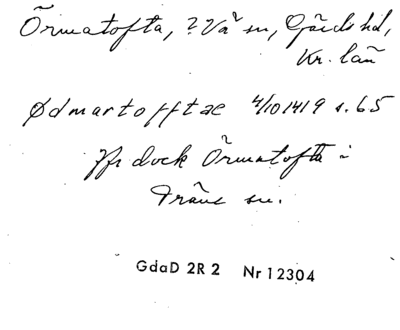 Örmatofta, ? Vå sn, Gärds hd,
Kr. län
Ødmartofftæ 4/10 1419 s. 65
Jfr dock Örmatofta i
Träne sn.
GdaD 2R2 Nr 12304